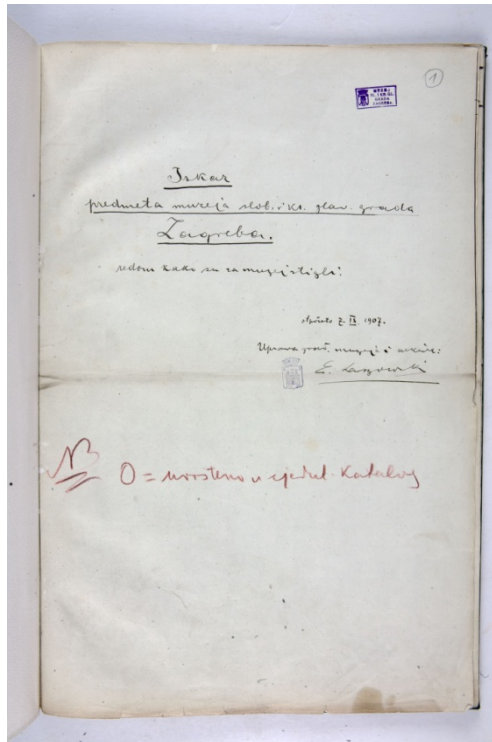 1
MUZEJ
GRADA
ZAGREBA
Iskaz
predmeta muzeja slob. i kr. glav. grada
Zagreba.
redom kako su za muzej stigli.
7. IX. 1907.
Uprava grad. muzeja i arkiva:
E. Laszowski
NB
O = uvršteno u cjedul. Katalog